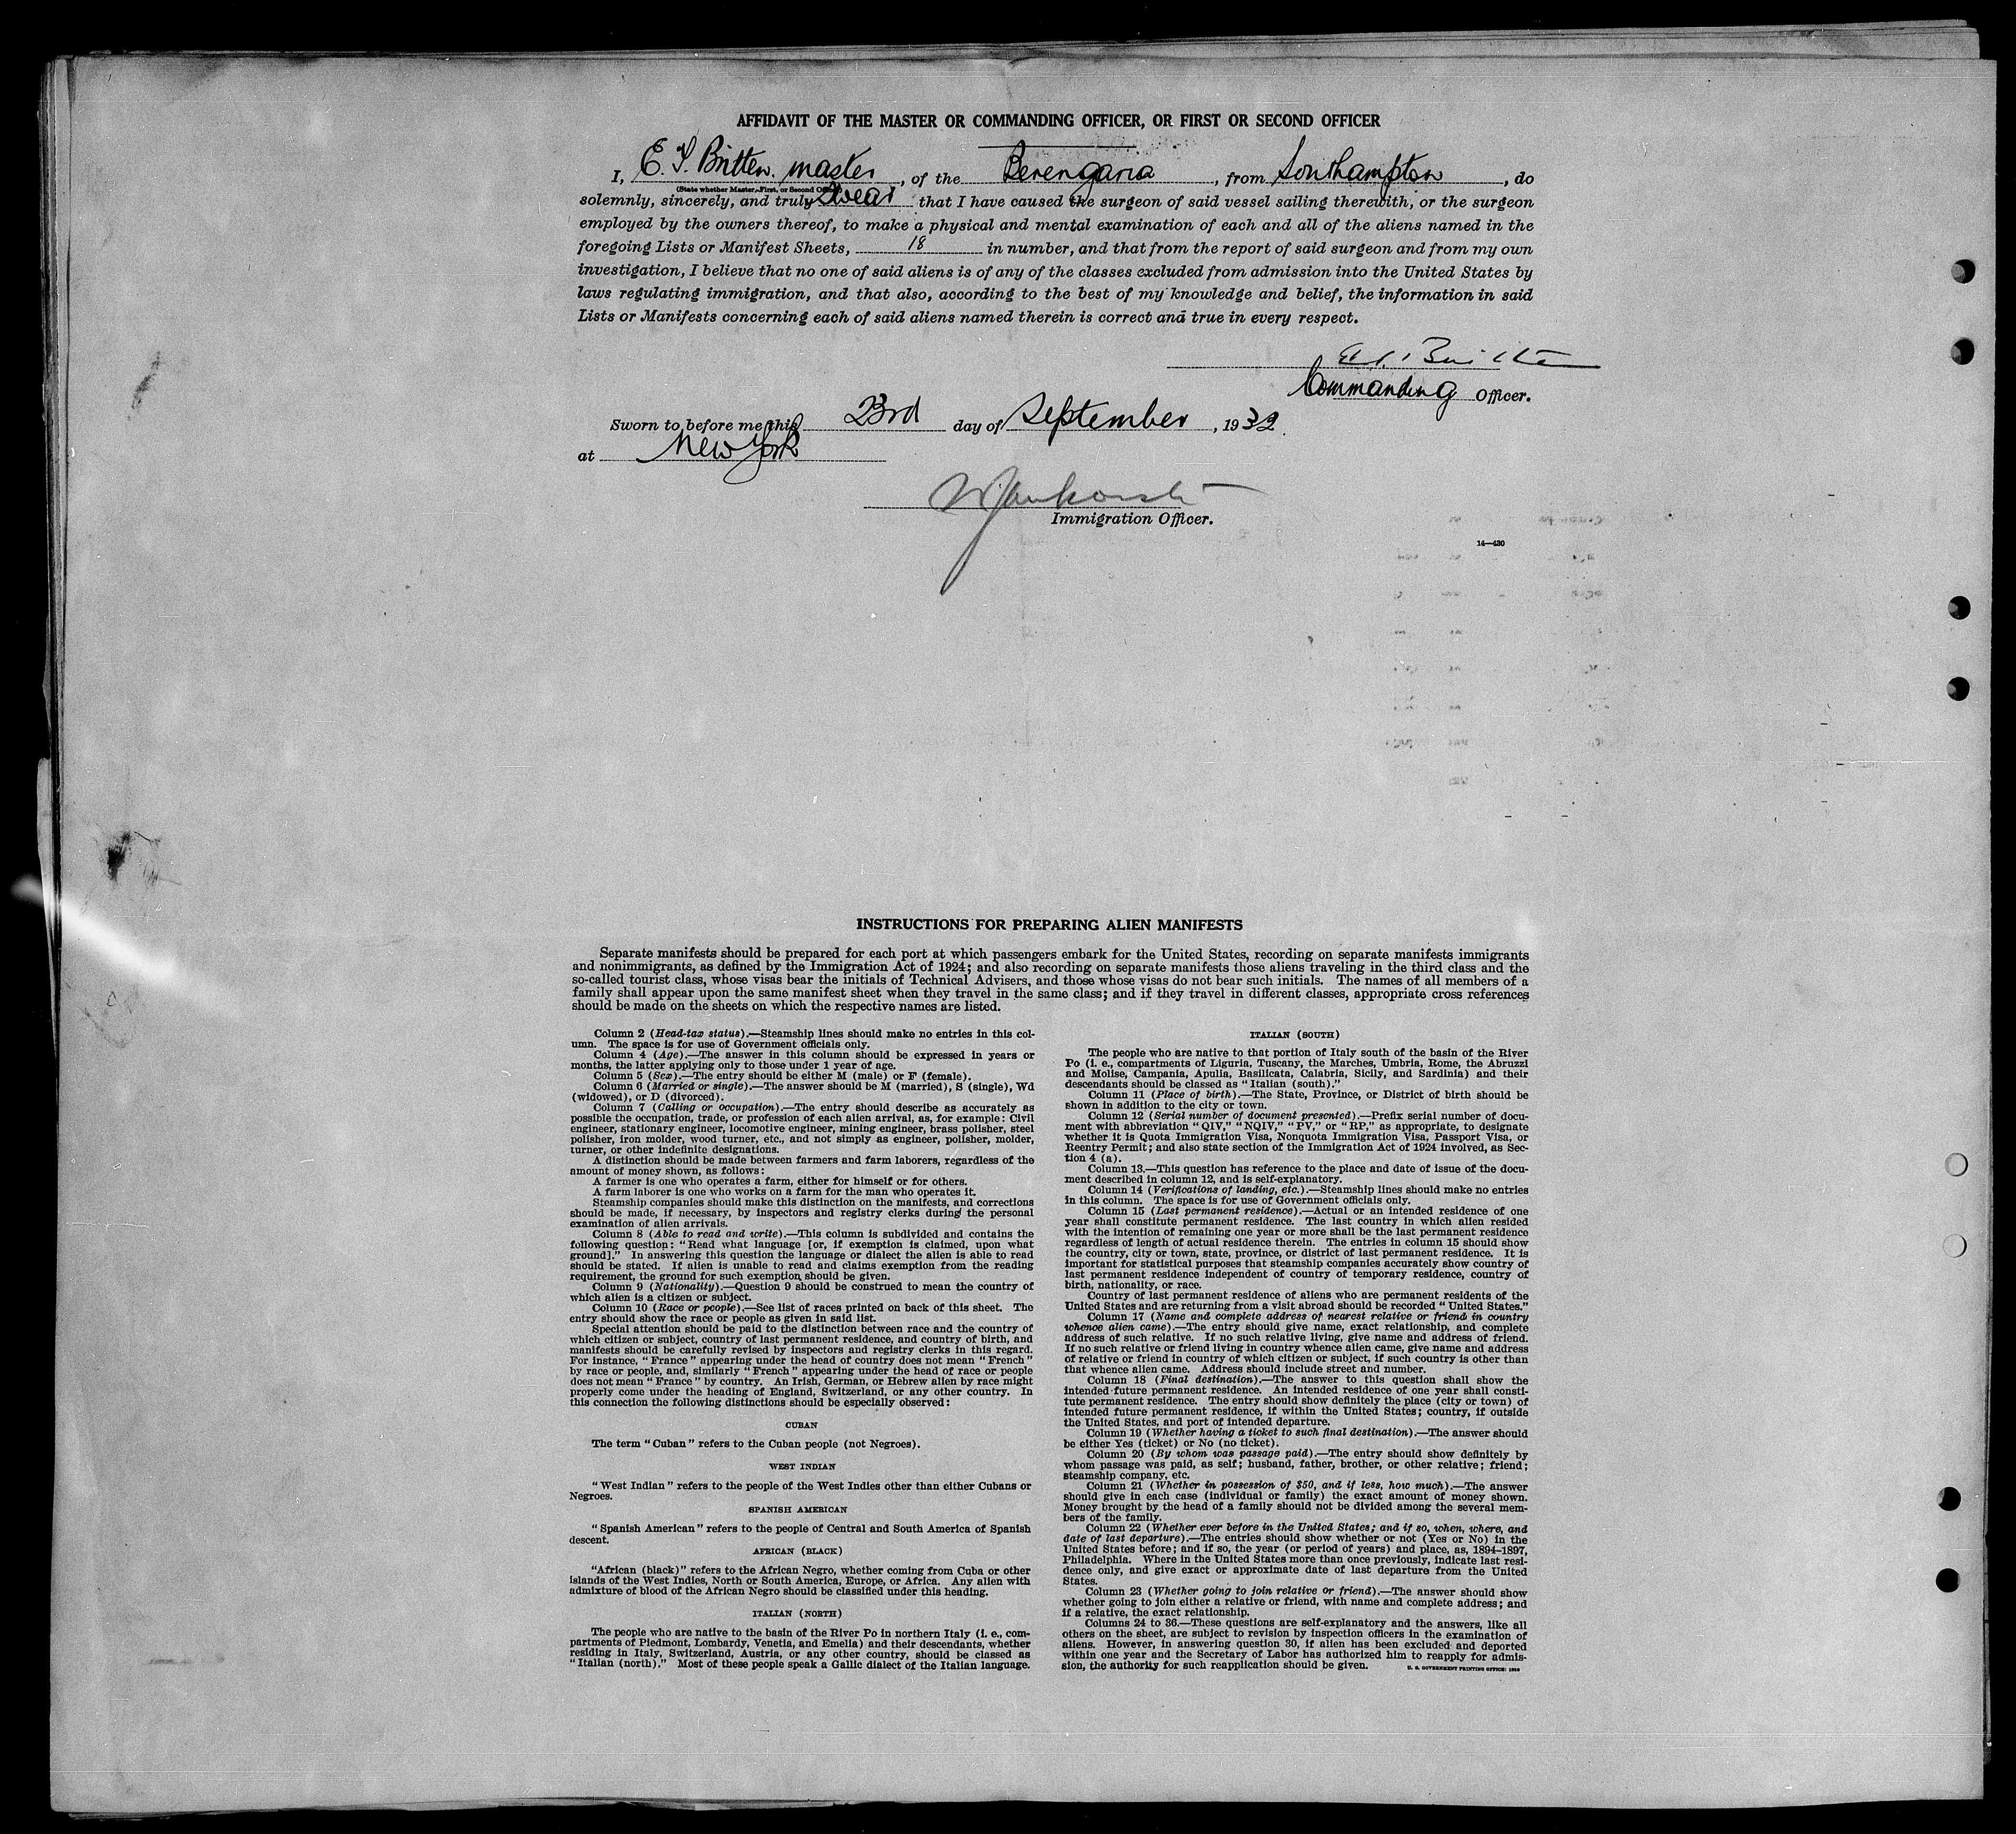 AFFIDAVIT OF THE MASTER OR COMMANDING OFFICER, OR FIRST OR SECOND OFFICER
I, E. T. Britten. master, of the Berengaria, from Southampton, do
(State whether Master, First, or Second Officer)
solemnly, sincerely, and truly swear that I have caused the surgeon of said vessel sailing therewith, or the surgeon
employed by the owners thereof, to make a physical and mental examination of each and all of the aliens named in the
foregoing Lists or Manifest Sheets, 18 in number, and that from the report of said surgeon and from my own
investigation, I believe that no one of said aliens is of any of the classes excluded from admission into the United States by
laws regulating immigration, and that also, according to the best of my knowledge and belief, the information in said
Lists or Manifests concerning each of said aliens named therein is correct and true in every respect.
Commanding Officer.
Sworn to before me this 23rd day of September, 1932.
at New York
Immigration Officer.
14—430
INSTRUCTIONS FOR PREPARING ALIEN MANIFESTS
Separate manifests should be prepared for each port at which passengers embark for the United States, recording on separate manifests immigrants
and nonimmigrants, as defined by the Immigration Act of 1924; and also recording on separate manifests those aliens traveling in the third class and the
so-called tourist class, whose visas bear the initials of Technical Advisers, and those whose visas do not bear such initials. The names of all members of a
family shall appear upon the same manifest sheet when they travel in the same class; and if they travel in different classes, appropriate cross references
should be made on the sheets on which the respective names are listed.
Column 2 (Head-tax status).—Steamship lines should make no entries in this col-
umn. The space is for use of Government officials only.
Column 4 (Age).—The answer in this column should be expressed in years or
months, the latter applying only to those under 1 year of age.
Column 5 (Sex).—The entry should be either M (male) or F (female).
Column 6 (Married or single).—The answer should be M (married), S (single), Wd
(widowed), or D (divorced).
Column 7 (Calling or occupation).—The entry should describe as accurately as
possible the occupation, trade, or profession of each alien arrival, as, for example: Civil
engineer, stationary engineer, locomotive engineer, mining engineer, brass polisher, steel
polisher, iron molder, wood turner, etc., and not simply as engineer, polisher, molder,
turner, or other indefinite designations.
A distinction should be made between farmers and farm laborers, regardless of the
amount of money shown, as follows:
A farmer is one who operates a farm, either for himself or for others.
A farm laborer is one who works on a farm for the man who operates it.
Steamship companies should make this distinction on the manifests, and corrections
should be made, if necessary, by inspectors and registry clerks during the personal
examination of alien arrivals.
Column 8 (Able to read and write).—This column is subdivided and contains the
following question: "Read what language [or, if exemption is claimed, upon what
ground]." In answering this question the language or dialect the alien is able to read
should be stated. If alien is unable to read and claims exemption from the reading
requirement, the ground for such exemption should be given.
Column 9 (Nationality).—Question 9 should be construed to mean the country of
which alien is a citizen or subject.
Column 10 (Race or people).—See list of races printed on back of this sheet. The
entry should show the race or people as given in said list.
Special attention should be paid to the distinction between race and the country of
which citizen or subject, country of last permanent residence, and country of birth, and
manifests should be carefully revised by inspectors and registry clerks in this regard.
For instance, "France" appearing under the head of country does not mean "French"
by race or people, and, similarly "French" appearing under the head of race or people
does not mean "France" by country. An Irish, German, or Hebrew alien by race might
properly come under the heading of England, Switzerland, or any other country. In
this connection the following distinctions should be especially observed:
CUBAN
The term "Cuban" refers to the Cuban people (not Negroes).
WEST INDIAN
"West Indian" refers to the people of the West Indies other than either Cubans or
Negroes.
SPANISH AMERICAN
"Spanish American" refers to the people of Central and South America of Spanish
descent.
AFRICAN (BLACK)
"African (black)" refers to the African Negro, whether coming from Cuba or other
islands of the West Indies, North or South America, Europe, or Africa. Any alien with
admixture of blood of the African Negro should be classified under this heading.
ITALIAN (NORTH)
The people who are native to the basin of the River Po in northern Italy (i. e., com-
partments of Piedmont, Lombardy, Venetia, and Emelia) and their descendants, whether
residing in Italy, Switzerland, Austria, or any other country, should be classed as
"Italian (north)." Most of these people speak a Gallic dialect of the Italian language.
ITALIAN (SOUTH)
The people who are native to that portion of Italy south of the basin of the River
Po (i. e., compartments of Liguria, Tuscany, the Marches, Umbria, Rome, the Abruzzi
and Molise, Campania, Apulia, Basilicata, Calabria, Sicily, and Sardinia) and their
descendants should be classed as "Italian (south)."
Column 11 (Place of birth).—The State, Province, or District of birth should be
shown in addition to the city or town.
Column 12 (Serial number of document presented).—Prefix serial number of docu-
ment with abbreviation "QIV," "NQIV," "PV," or "RP," as appropriate, to designate
whether it is Quota Immigration Visa, Nonquota Immigration Visa, Passport Visa, or
Reentry Permit; and also state section of the Immigration Act of 1924 involved, as Sec-
tion 4 (a).
Column 13.—This question has reference to the place and date of issue of the docu-
ment described in column 12, and is self-explanatory.
Column 14 (Verifications of landing, etc.).—Steamship lines should make no entries
in this column. The space is for use of Government officials only.
Column 15 (Last permanent residence).—Actual or an intended residence of one
year shall constitute permanent residence. The last country in which alien resided
with the intention of remaining one year or more shall be the last permanent residence
regardless of length of actual residence therein. The entries in column 15 should show
the country, city or town, state, province, or district of last permanent residence. It is
important for statistical purposes that steamship companies accurately show country of
last permanent residence independent of country of temporary residence, country of
birth, nationality, or race.
Country of last permanent residence of aliens who are permanent residents of the
United States and are returning from a visit abroad should be recorded "United States."
Column 17 (Name and complete address of nearest relative or friend in country
whence alien came).—The entry should give name, exact relationship, and complete
address of such relative. If no such relative living, give name and address of friend.
If no such relative or friend living in country whence alien came, give name and address
of relative or friend in country of which citizen or subject, if such country is other than
that whence alien came. Address should include street and number.
Column 18 (Final destination).—The answer to this question shall show the
intended future permanent residence. An intended residence of one year shall consti-
tute permanent residence. The entry should show definitely the place (city or town) of
intended future permanent residence, if within the United States; country, if outside
the United States, and port of intended departure.
Column 19 (Whether having a ticket to such final destination).—The answer should
be either Yes (ticket) or No (no ticket).
Column 20 (By whom was passage paid).—The entry should show definitely by
whom passage was paid, as self; husband, father, brother, or other relative; friend;
steamship company, etc.
Column 21 (Whether in possession of $50, and if less, how much).—The answer
should give in each case (individual or family) the exact amount of money shown.
Money brought by the head of a family should not be divided among the several mem-
bers of the family.
Column 22 (Whether ever before in the United States; and if so, when, where, and
date of last departure).—The entries should show whether or not (Yes or No) in the
United States before; and if so, the year (or period of years) and place, as, 1894-1897,
Philadelphia. Where in the United States more than once previously, indicate last resi-
dence only, and give exact or approximate date of last departure from the United
States.
Column 23 (Whether going to join relative or friend).—The answer should show
whether going to join either a relative or friend, with name and complete address; and
if a relative, the exact relationship.
Columns 24 to 36.—These questions are self-explanatory and the answers, like all
others on the sheet, are subject to revision by inspection officers in the examination of
aliens. However, in answering question 30, if alien has been excluded and deported
within one year and the Secretary of Labor has authorized him to reapply for admis-
sion, the authority for such reapplication should be given.
U. S. GOVERNMENT PRINTING OFFICE: